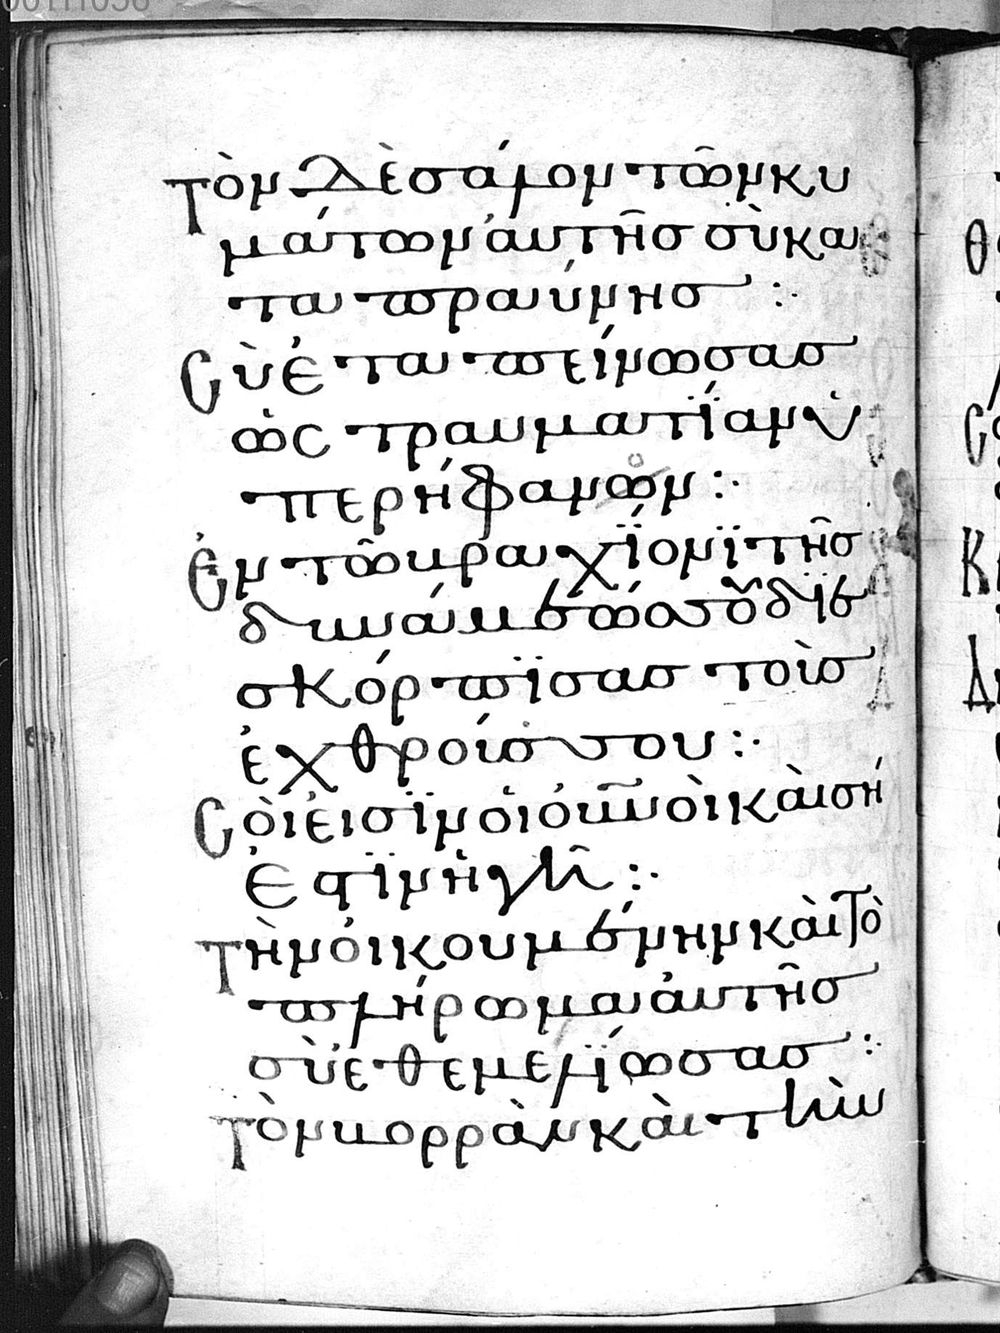 Τὸν δὲ σάλον τῶν κυ
μάτων ἀυτῆσ σὺ κα
ταπραύνησ :·
Σὺ ἐταπείνωσασ
ὡσ τραυματΐαν ὑ
περήφανων :·
Ἐν τῶ βραχΐονϊ τῆσ
δυνάμεώσ σου δϊε
σκόρπϊσασ τοὶσ
ἐχθροίσ σου :·
Σὸι ἐισϊν ὁι ὀυνοὶ κὰι σή
ἐστϊν ἡ γῆ :·
Τὴν ὀικουμένην κὰι τὸ
πλήρωμα ἀυτῆσ
σὺ ἐθεμελΐωσασ :·
Τὸν βορρὰν κὰι τὴν